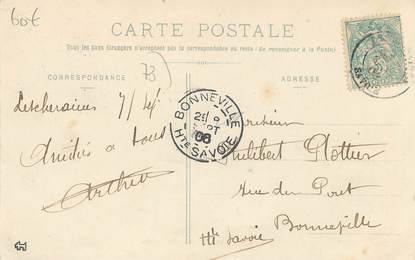 60€
CARTE POSTALE
Tous les pays étrangers n'acceptent pas la correspondance au recto (Se renseigner à la Poste)
CORRESPONDANCE
ADRESSE
Lescheraines 7/ Sep.
Amitiés à tous
Arthur
BONNEVILLE
SEPT
06
HTE SAVOIE
Philibert Plottier
Rue du Pont
Bonneville
Hte Savoie